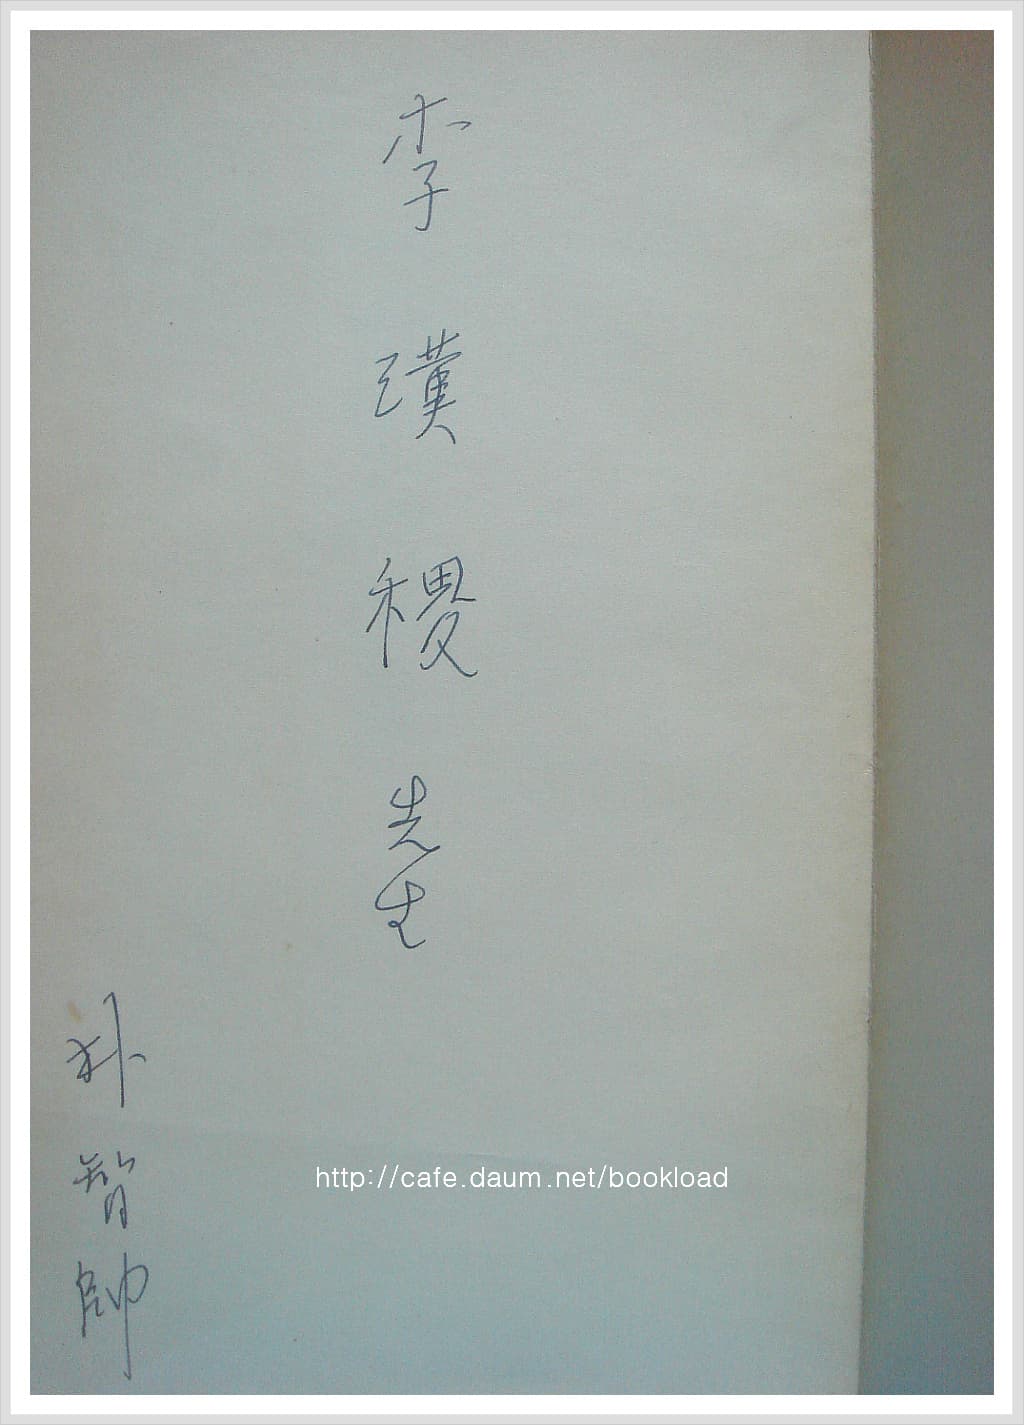 李漢稷先生
朴智帥
http://cafe.daum.net/bookload